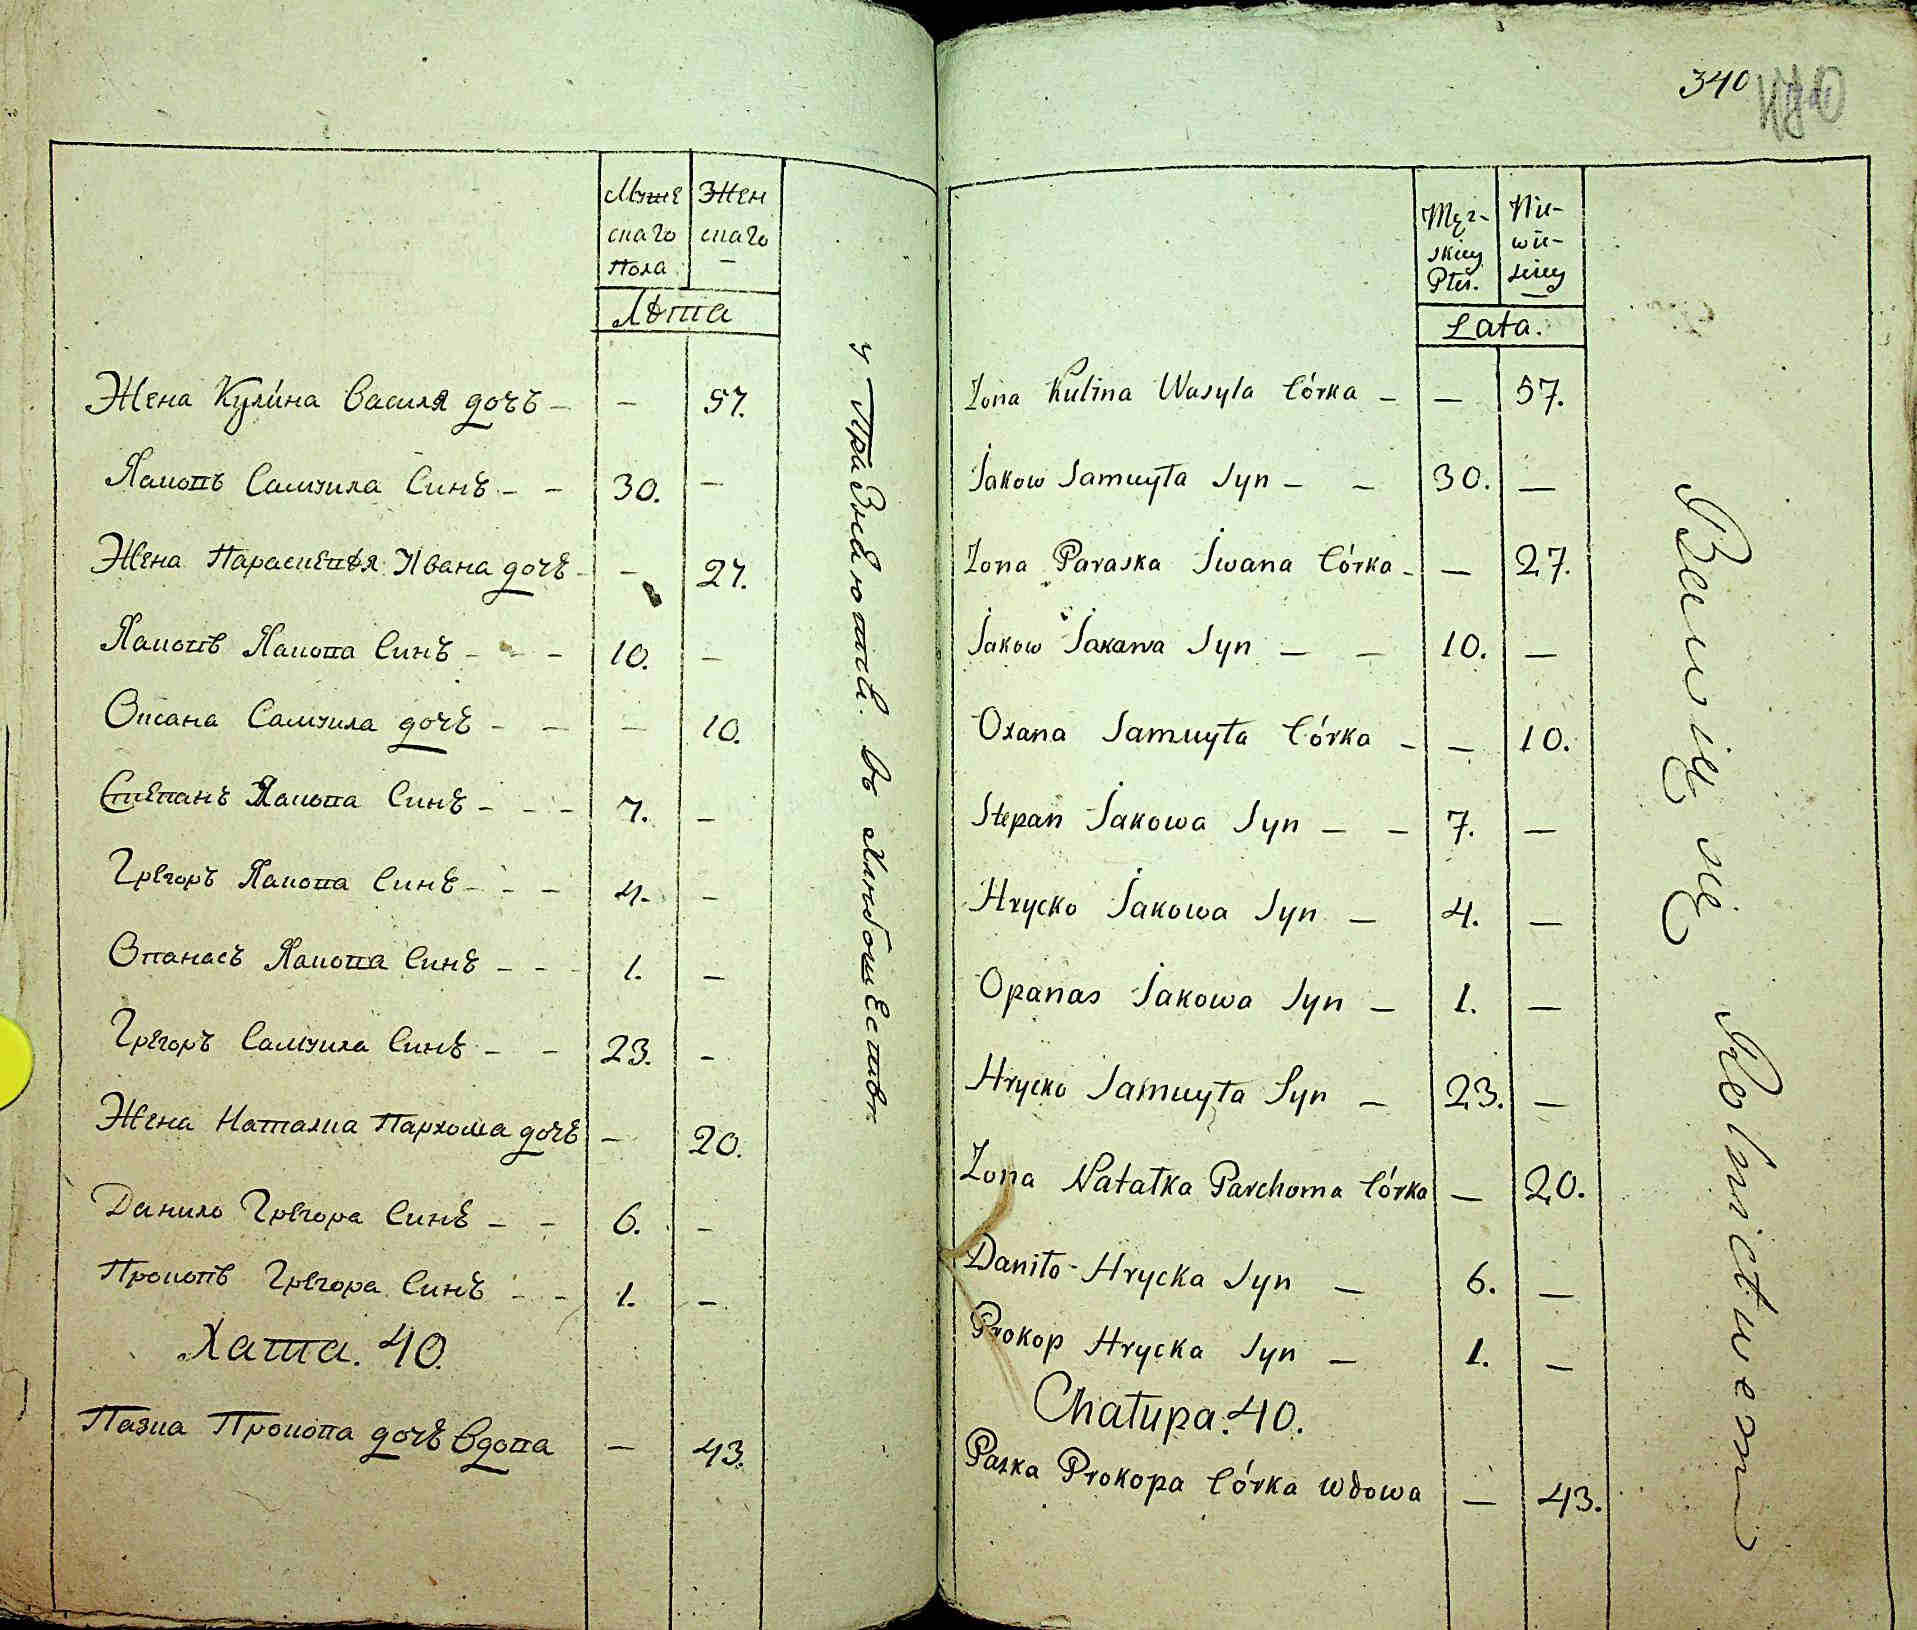 Мужескаго Пола
Женскаго
Лѣта
Жена Кулина Василя дочъ — — 57.
Яковъ Самуила Синъ — — 30. —
Жена Параскевѣя Ивана дочъ — — 27.
Яковъ Якова Синъ — — 10. —
Оксана Самуила дочъ — — — 10.
Степанъ Якова Синъ — — 7. —
Грегоръ Якова Синъ — — 4. —
Опанасъ Якова Синъ — — 1. —
Грегоръ Самуила Синъ — — 23. —
Жена Наталка Пархома дочъ — 20.
Данило Грегора Синъ — — 6. —
Прокопъ Грегора Синъ — — 1. —
Хата. 40.
Пазка Прокопа дочъ вдова — 43.
въ Хлѣбошествѣ
340
Męz-
skiey
Płci.
Nie-
wie-
sciey
Lata.
Zona Kulina Wasyla Córka — — 57.
Jakow Samuyła Syn — — 30. —
Zona Paraska Jwana Córka — — 27.
Jakow Jakowa Syn — — 10. —
Oxana Samuyła Córka — — 10.
Stepan Jakowa Syn — — 7. —
Hrycko Jakowa Syn — 4. —
Opanas Jakowa Syn — 1. —
Hrycko Samuyła Syn — 23. —
Zona Natałka Parchoma Córka — 20.
Daniło Hrycka Syn — 6. —
Prokop Hrycka Syn — 1. —
Chałupa. 40.
Paska Prokopa Córka wdowa — 43.
Bawią się Rolnictwem